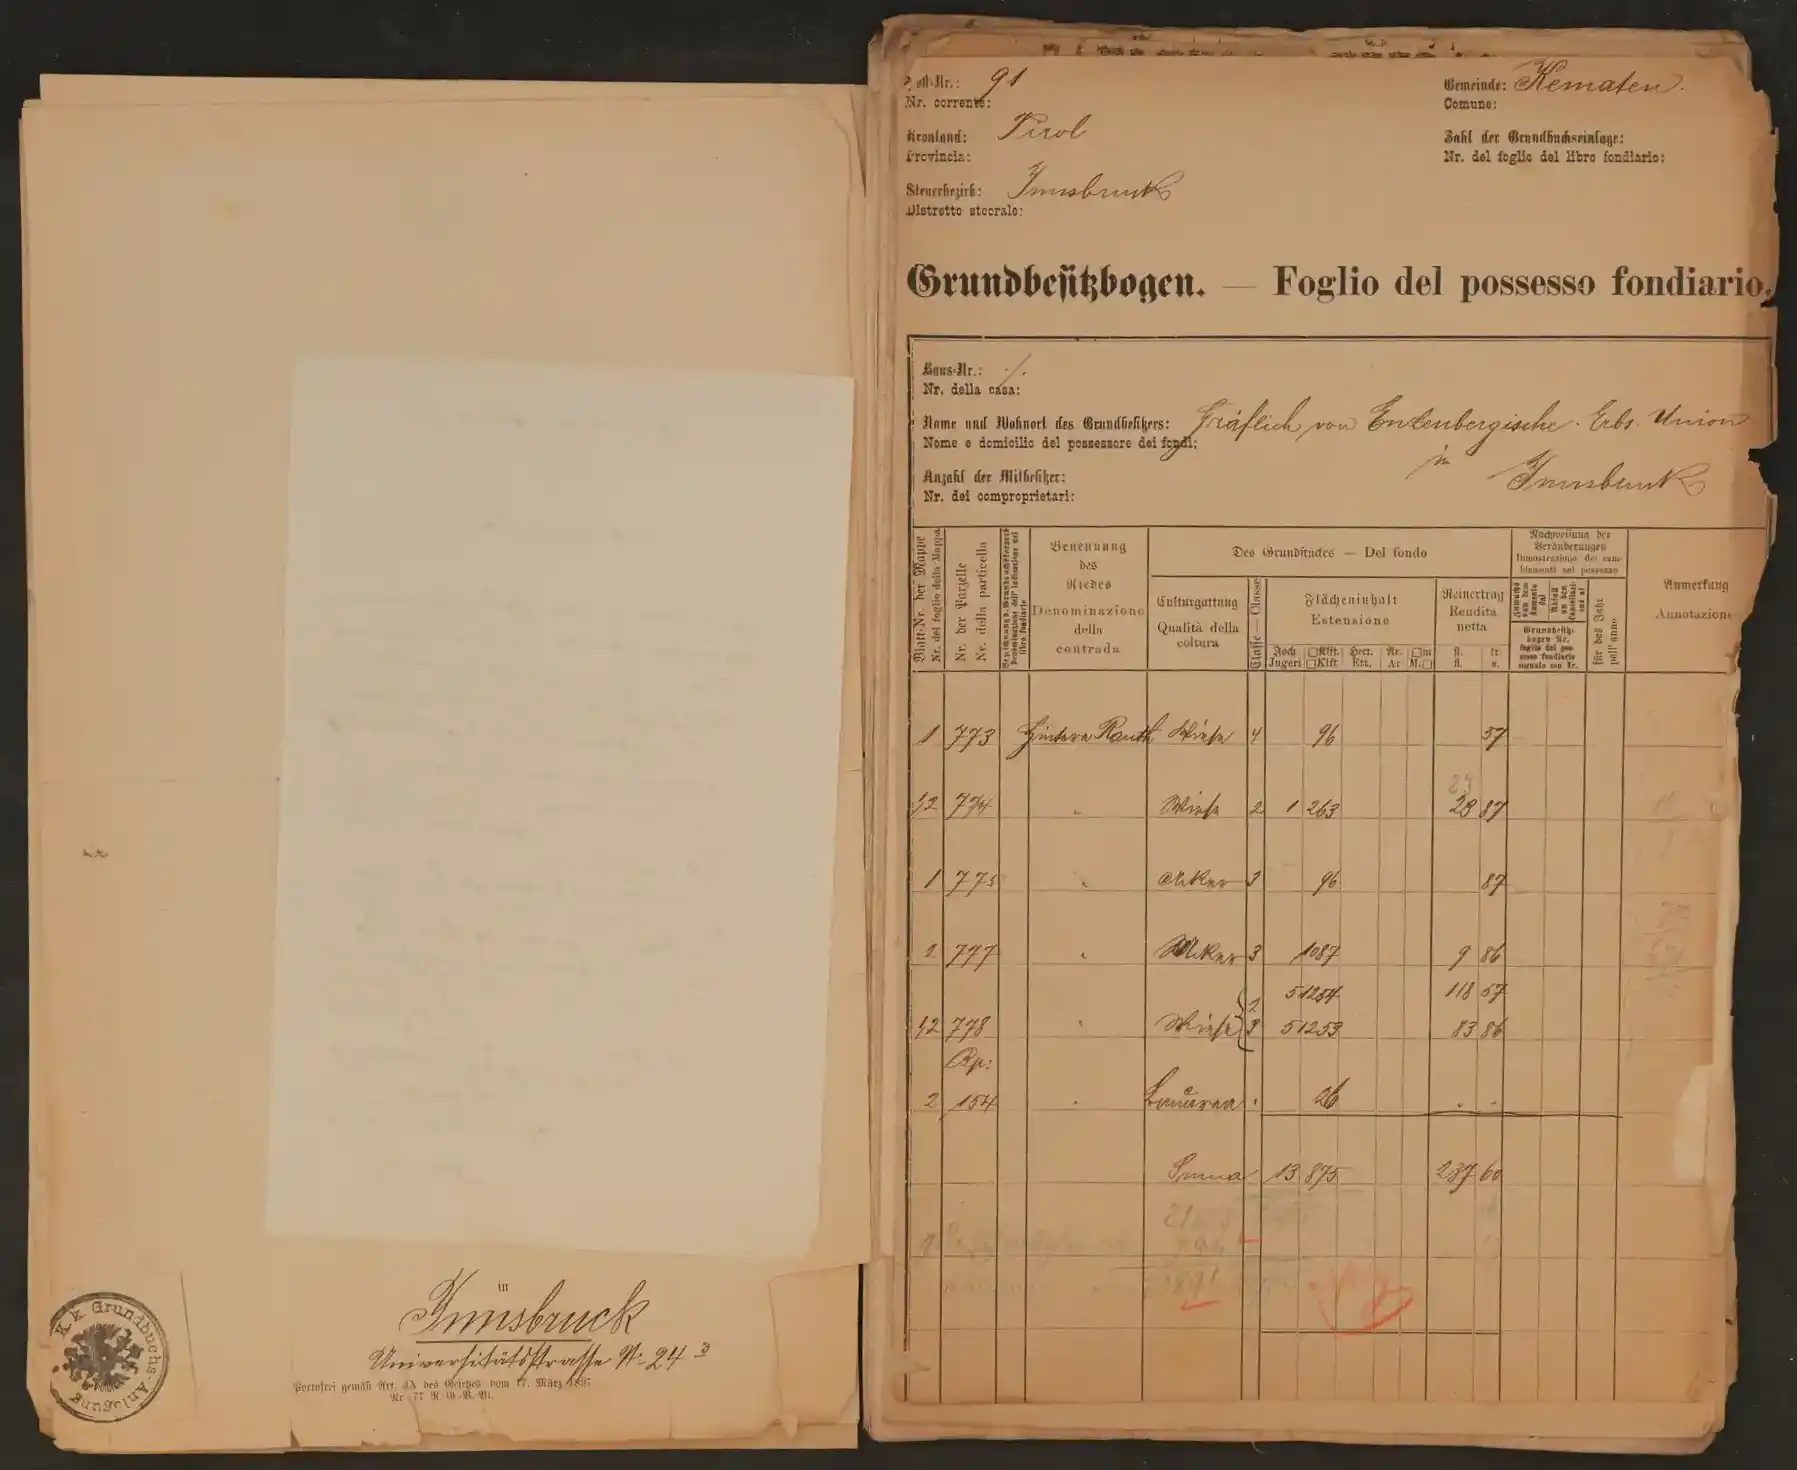 in
Innsbruck
Universitätsstrasse No 24 3
Portofrei gemäß Art. des Gesetzes vom 17. März
Nr 77 R G. Bl.
K. k. Grundbuchs-Anlegung
Post-Nr.: 91
Nr. corrente:
Kronland: Tirol
Provincia:
Steuerbezirk: Innsbruck
Distretto steorale:
Gemeinde: Kematen.
Comune:
Zahl der Grundbuchseinlage:
Nr. del foglio del libro fondiario:
Grundbesitzbogen. — Foglio del possesso fondiario.
Haus-Nr.: ./.
Nr. della casa:
Name und Wohnort des Grundbesitzers: Gräflich von Enzenbergische. Erbs. Union
Nome e domicilio del possessore dei fondi:
in Innsbruck
Anzahl der Mitbesitzer:
Nr. dei comproprietari:
Blatt-Nr. der Mappe
Nr. del foglio della Mappa
Nr. der Parzelle
Nr. della particella
Benennung
des
Riedes
Denominazione
della
contrada
Des Grundstückes — Del fondo
Culturgattung
Qualità della
coltura
Classe — Classe
Flächeninhalt
Estensione
Joch □Klft. Hect. Ar. □m
Jugeri □Klft Ett. Ar M.□
Reinertrag
Rendita
netta
fl. kr.
fl. s.
Nachweisung der
Veränderungen
Dimostrazione dei cam-
biamenti nel possesso
Grundbesitz-
bogen Nr.
foglio del pos-
sesso fondiario
segnato con Nr.
für das Jahr
pell' anno
Anmerkung
Annotazione
1 773 Hintere Rauth Wiese 4 96 57
1/2 774 " Wiese 2 1 263 23 87
1 775 " Acker 3 96 87
2 777 " Acker 3 1087 9 86
5 1254 118 57
1/2 778 " Wiese 2 3 5 1253 83 86
Bp:
2 154 " Bauarea . 26 . .
Suma 13 875 237 60